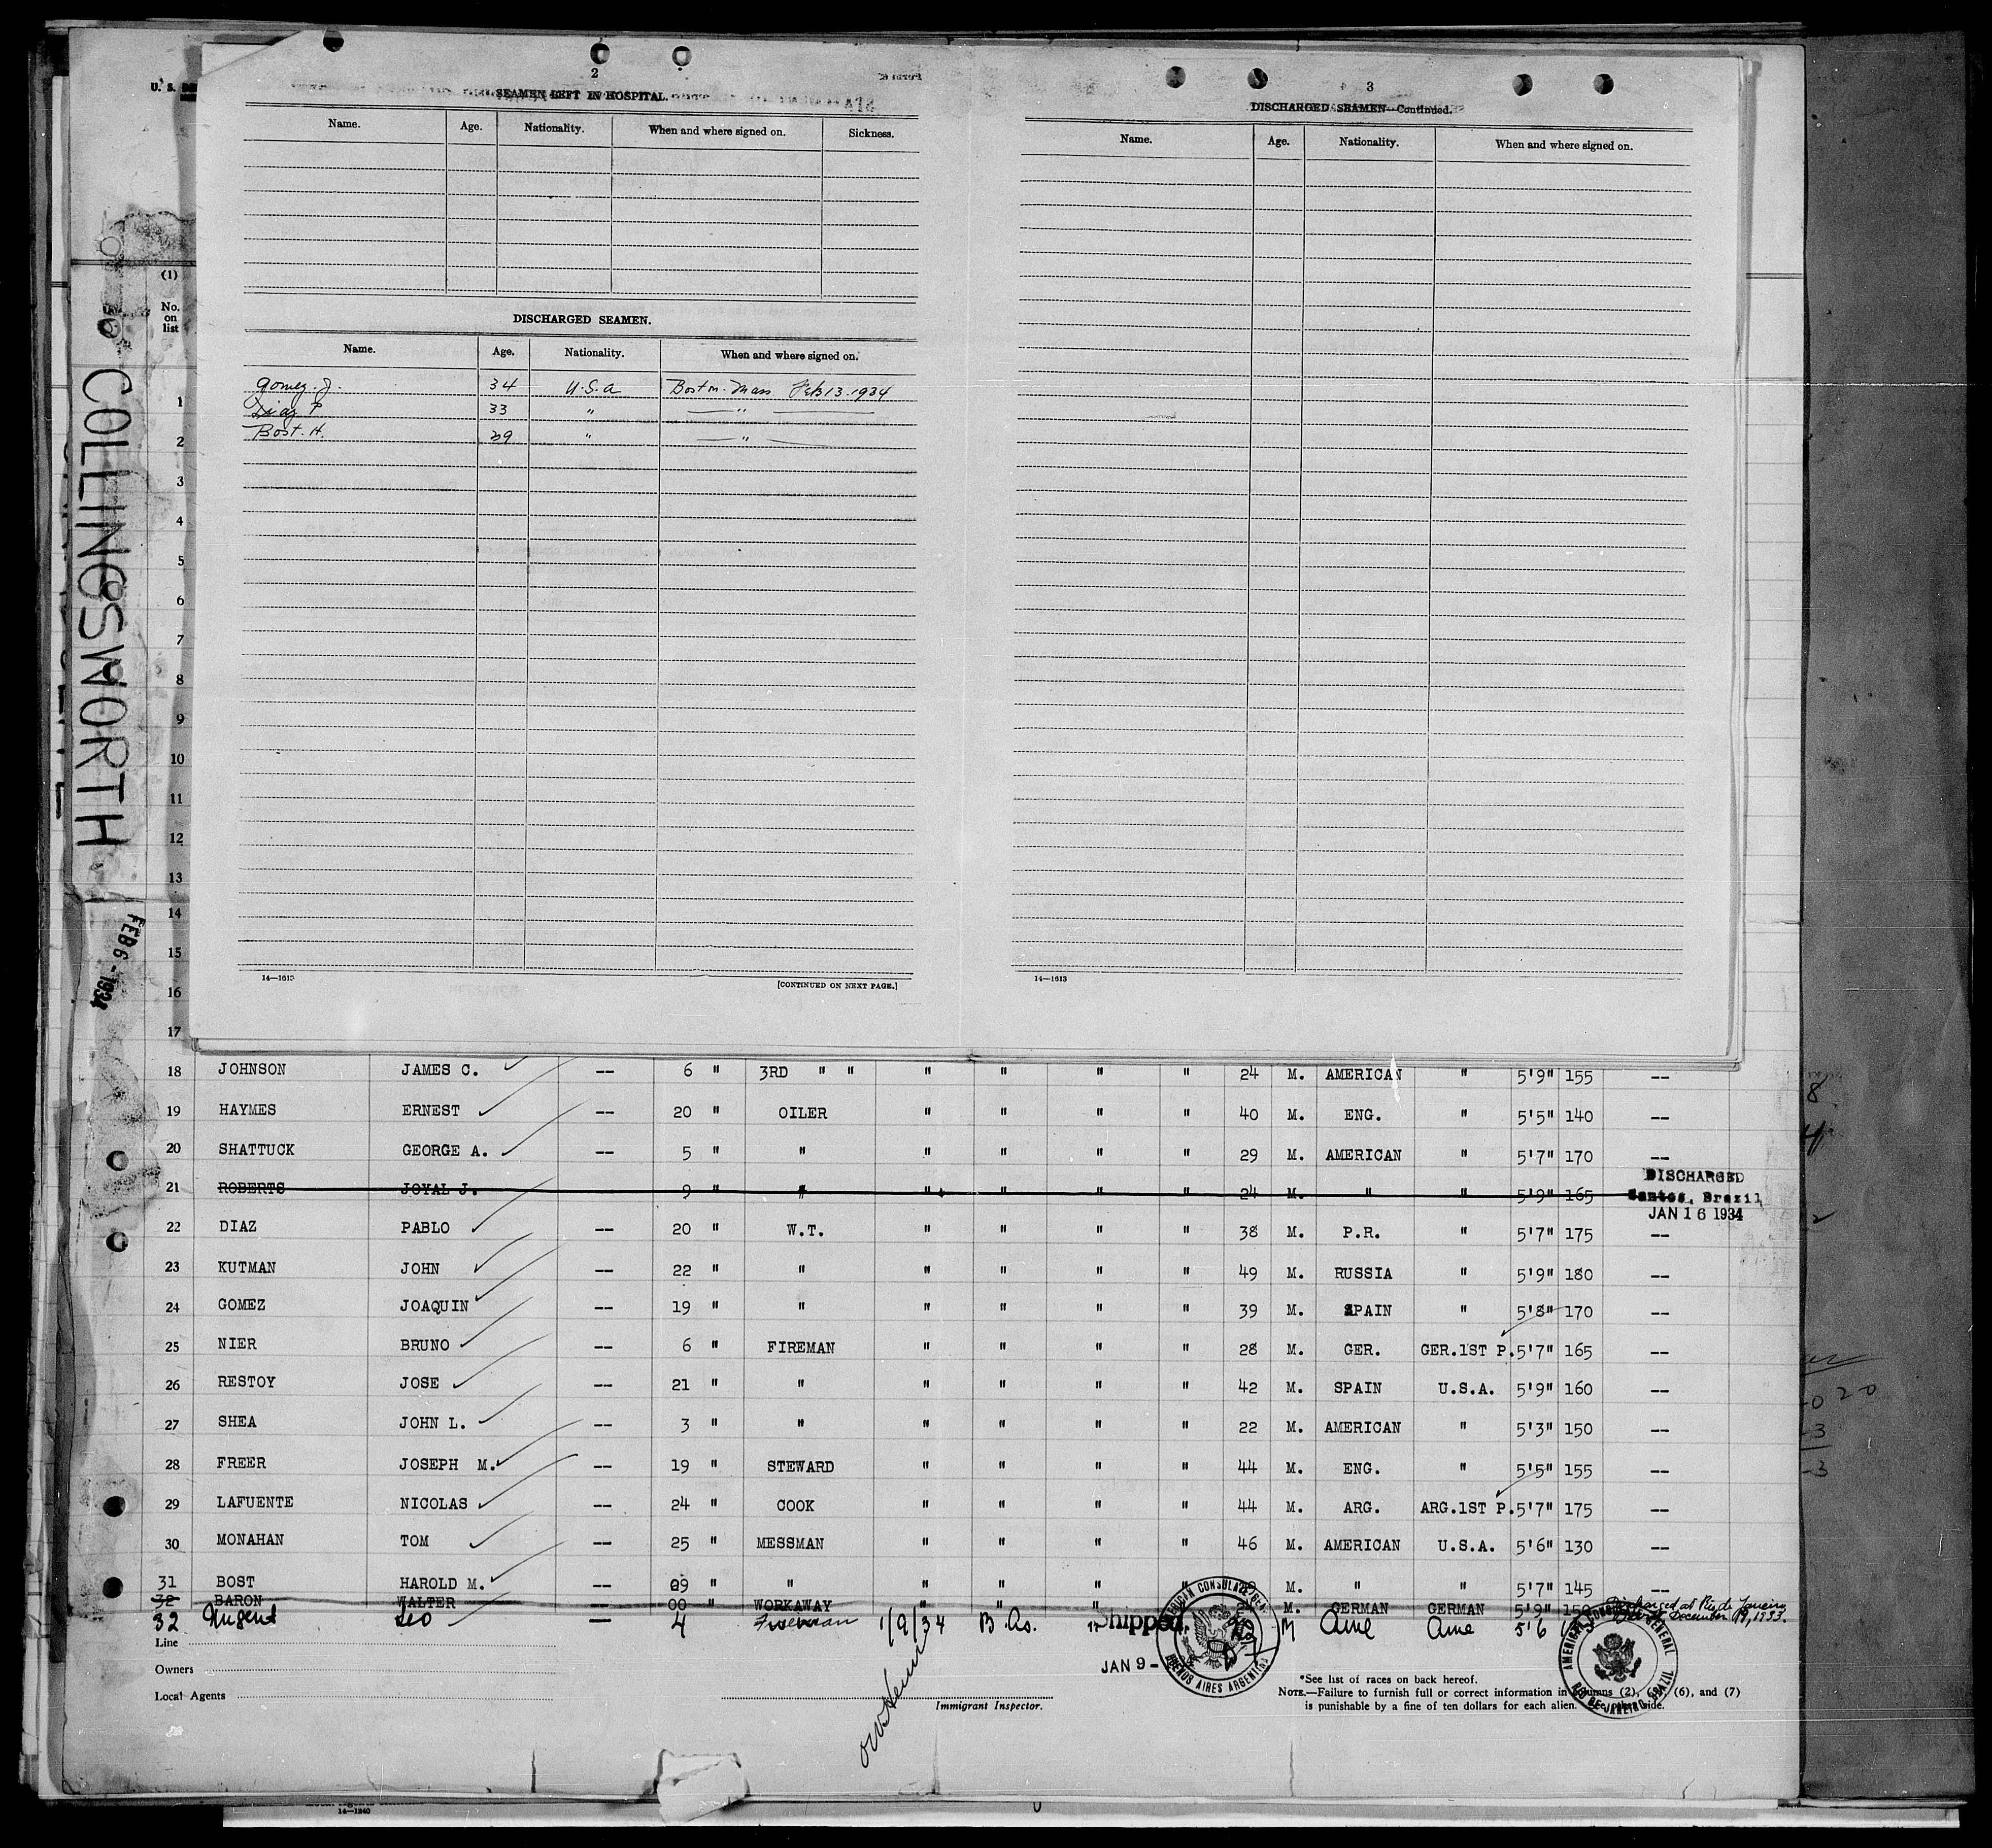 U. S.
COLLINGSWORTH
FEB 6 - 1934
(1)
No. on list
2
SEAMEN LEFT IN HOSPITAL.
Name. Age. Nationality. When and where signed on. Sickness.
DISCHARGED SEAMEN.
Name. Age. Nationality. When and where signed on.
Gomez. J. 34 U.S.A Boston. Mass Feb 13. 1934
Diaz P 33 " — " —
Bost. H. 29 " — " —
14—1613
[CONTINUED ON NEXT PAGE.]
3
DISCHARGED SEAMEN—Continued.
Name. Age. Nationality. When and where signed on.
14—1613
1
2
3
4
5
6
7
8
9
10
11
12
13
14
15
16
17
18 JOHNSON JAMES C. -- 6 " 3RD " " " " " " 24 M. AMERICAN " 5'9" 155 --
19 HAYMES ERNEST -- 20 " OILER " " " " 40 M. ENG. " 5'5" 140 --
20 SHATTUCK GEORGE A. -- 5 " " " " " " 29 M. AMERICAN " 5'7" 170 --
21 ROBERTS JOYAL J. 9 " " " " " " 24 M. " " 5'9" 165 DISCHARGED
Santos, Brazil
JAN 16 1934
22 DIAZ PABLO -- 20 " W.T. " " " " 38 M. P.R. " 5'7" 175 --
23 KUTMAN JOHN -- 22 " " " " " " 49 M. RUSSIA " 5'9" 180 --
24 GOMEZ JOAQUIN -- 19 " " " " " " 39 M. SPAIN " 5'8" 170 --
25 NIER BRUNO -- 6 " FIREMAN " " " " 28 M. GER. GER.1ST P. 5'7" 165 --
26 RESTOY JOSE -- 21 " " " " " " 42 M. SPAIN U.S.A. 5'9" 160 --
27 SHEA JOHN L. -- 3 " " " " " " 22 M. AMERICAN " 5'3" 150 --
28 FREER JOSEPH M. -- 19 " STEWARD " " " " 44 M. ENG. " 5'5" 155 --
29 LAFUENTE NICOLAS -- 24 " COOK " " " " 44 M. ARG. ARG.1ST P. 5'7" 175 --
30 MONAHAN TOM -- 25 " MESSMAN " " " " 46 M. AMERICAN U.S.A. 5'6" 130 --
31 BOST HAROLD M. -- 09 " " " " " " M. " " 5'7" 145 --
32 BARON WALTER -- 00 " WORKAWAY " " " M. GERMAN GERMAN 5'9" Discharged at Rio de Janeiro
December 19, 1933.
32 Nugent Leo — 4 Fireman 1/9/34 B. As. " Shipped. M Ame Ame 5'6
JAN 9 -
AMERICAN CONSULATE GEN.
BUENOS AIRES ARGENTINA
AMERICAN CONSULATE GENERAL
RIO DE JANEIRO, BRAZIL
Line
Owners
Local Agents
Immigrant Inspector.
*See list of races on back hereof.
NOTE.—Failure to furnish full or correct information in columns (2), (6), and (7)
is punishable by a fine of ten dollars for each alien. side.
14—1240
8
20
-3
-3